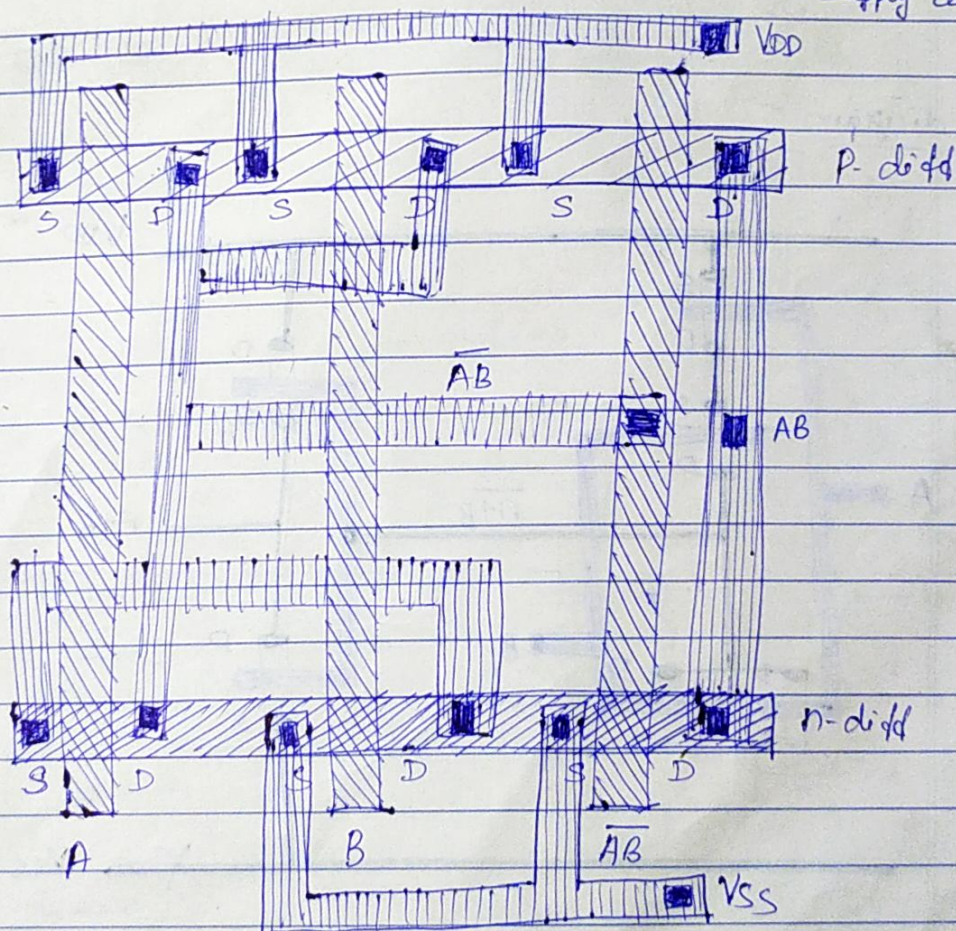 VDD
P-diff
S D S D S D
AB
AB
n-diff
S D S D S D
A B AB
VSS